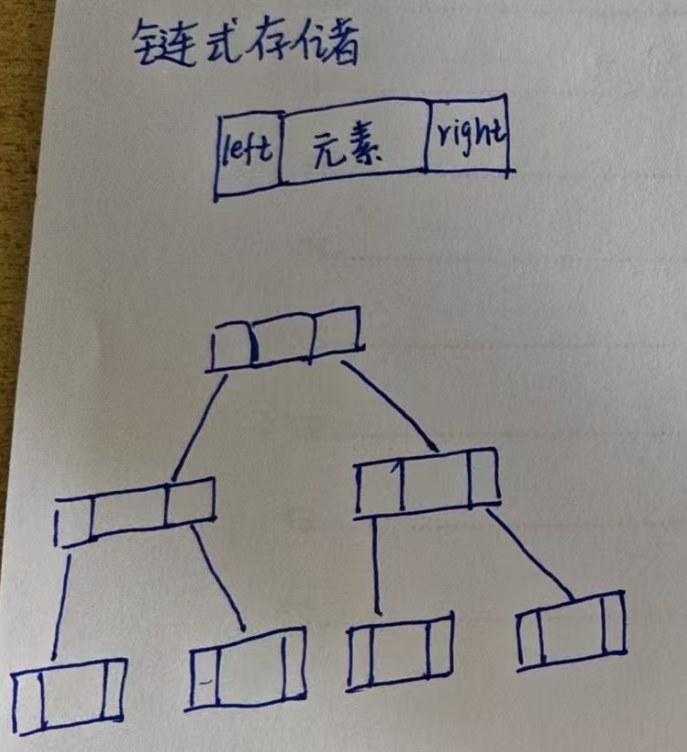 链式存储
left 元素 right